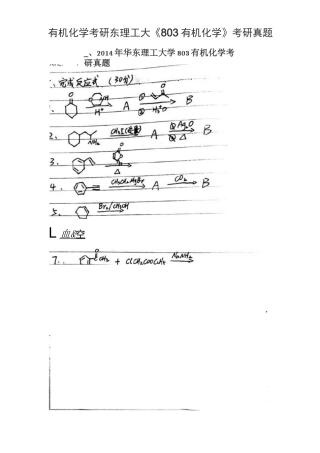 有机化学考研东理工大《803 有机化学》考研真题
一、2014 年华东理工大学 803 有机化学考
研真题
一、完成反应式 (30分)
1、 H⁺ A ① ② H₃⁺O B
2、 NH₂ CH₃I(过量) ① Ag₂O ② △ B
3、 △
4、 CH₃CH₂MgBr A CO₂ B
5、 Br₂/CH₃OH
L 血&空
7、 CCH₃ + ClCH₂COOC₂H₅ NaNH₂